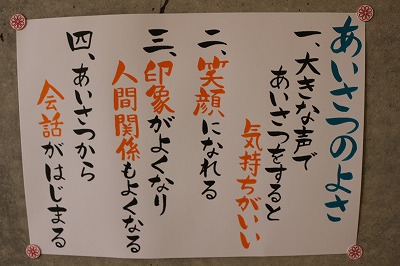 あいさつのよさ
一、大きな声で
あいさつをすると
気持ちがいい
二、笑顔になれる
三、印象がよくなり
人間関係もよくなる
四、あいさつから
会話がはじまる